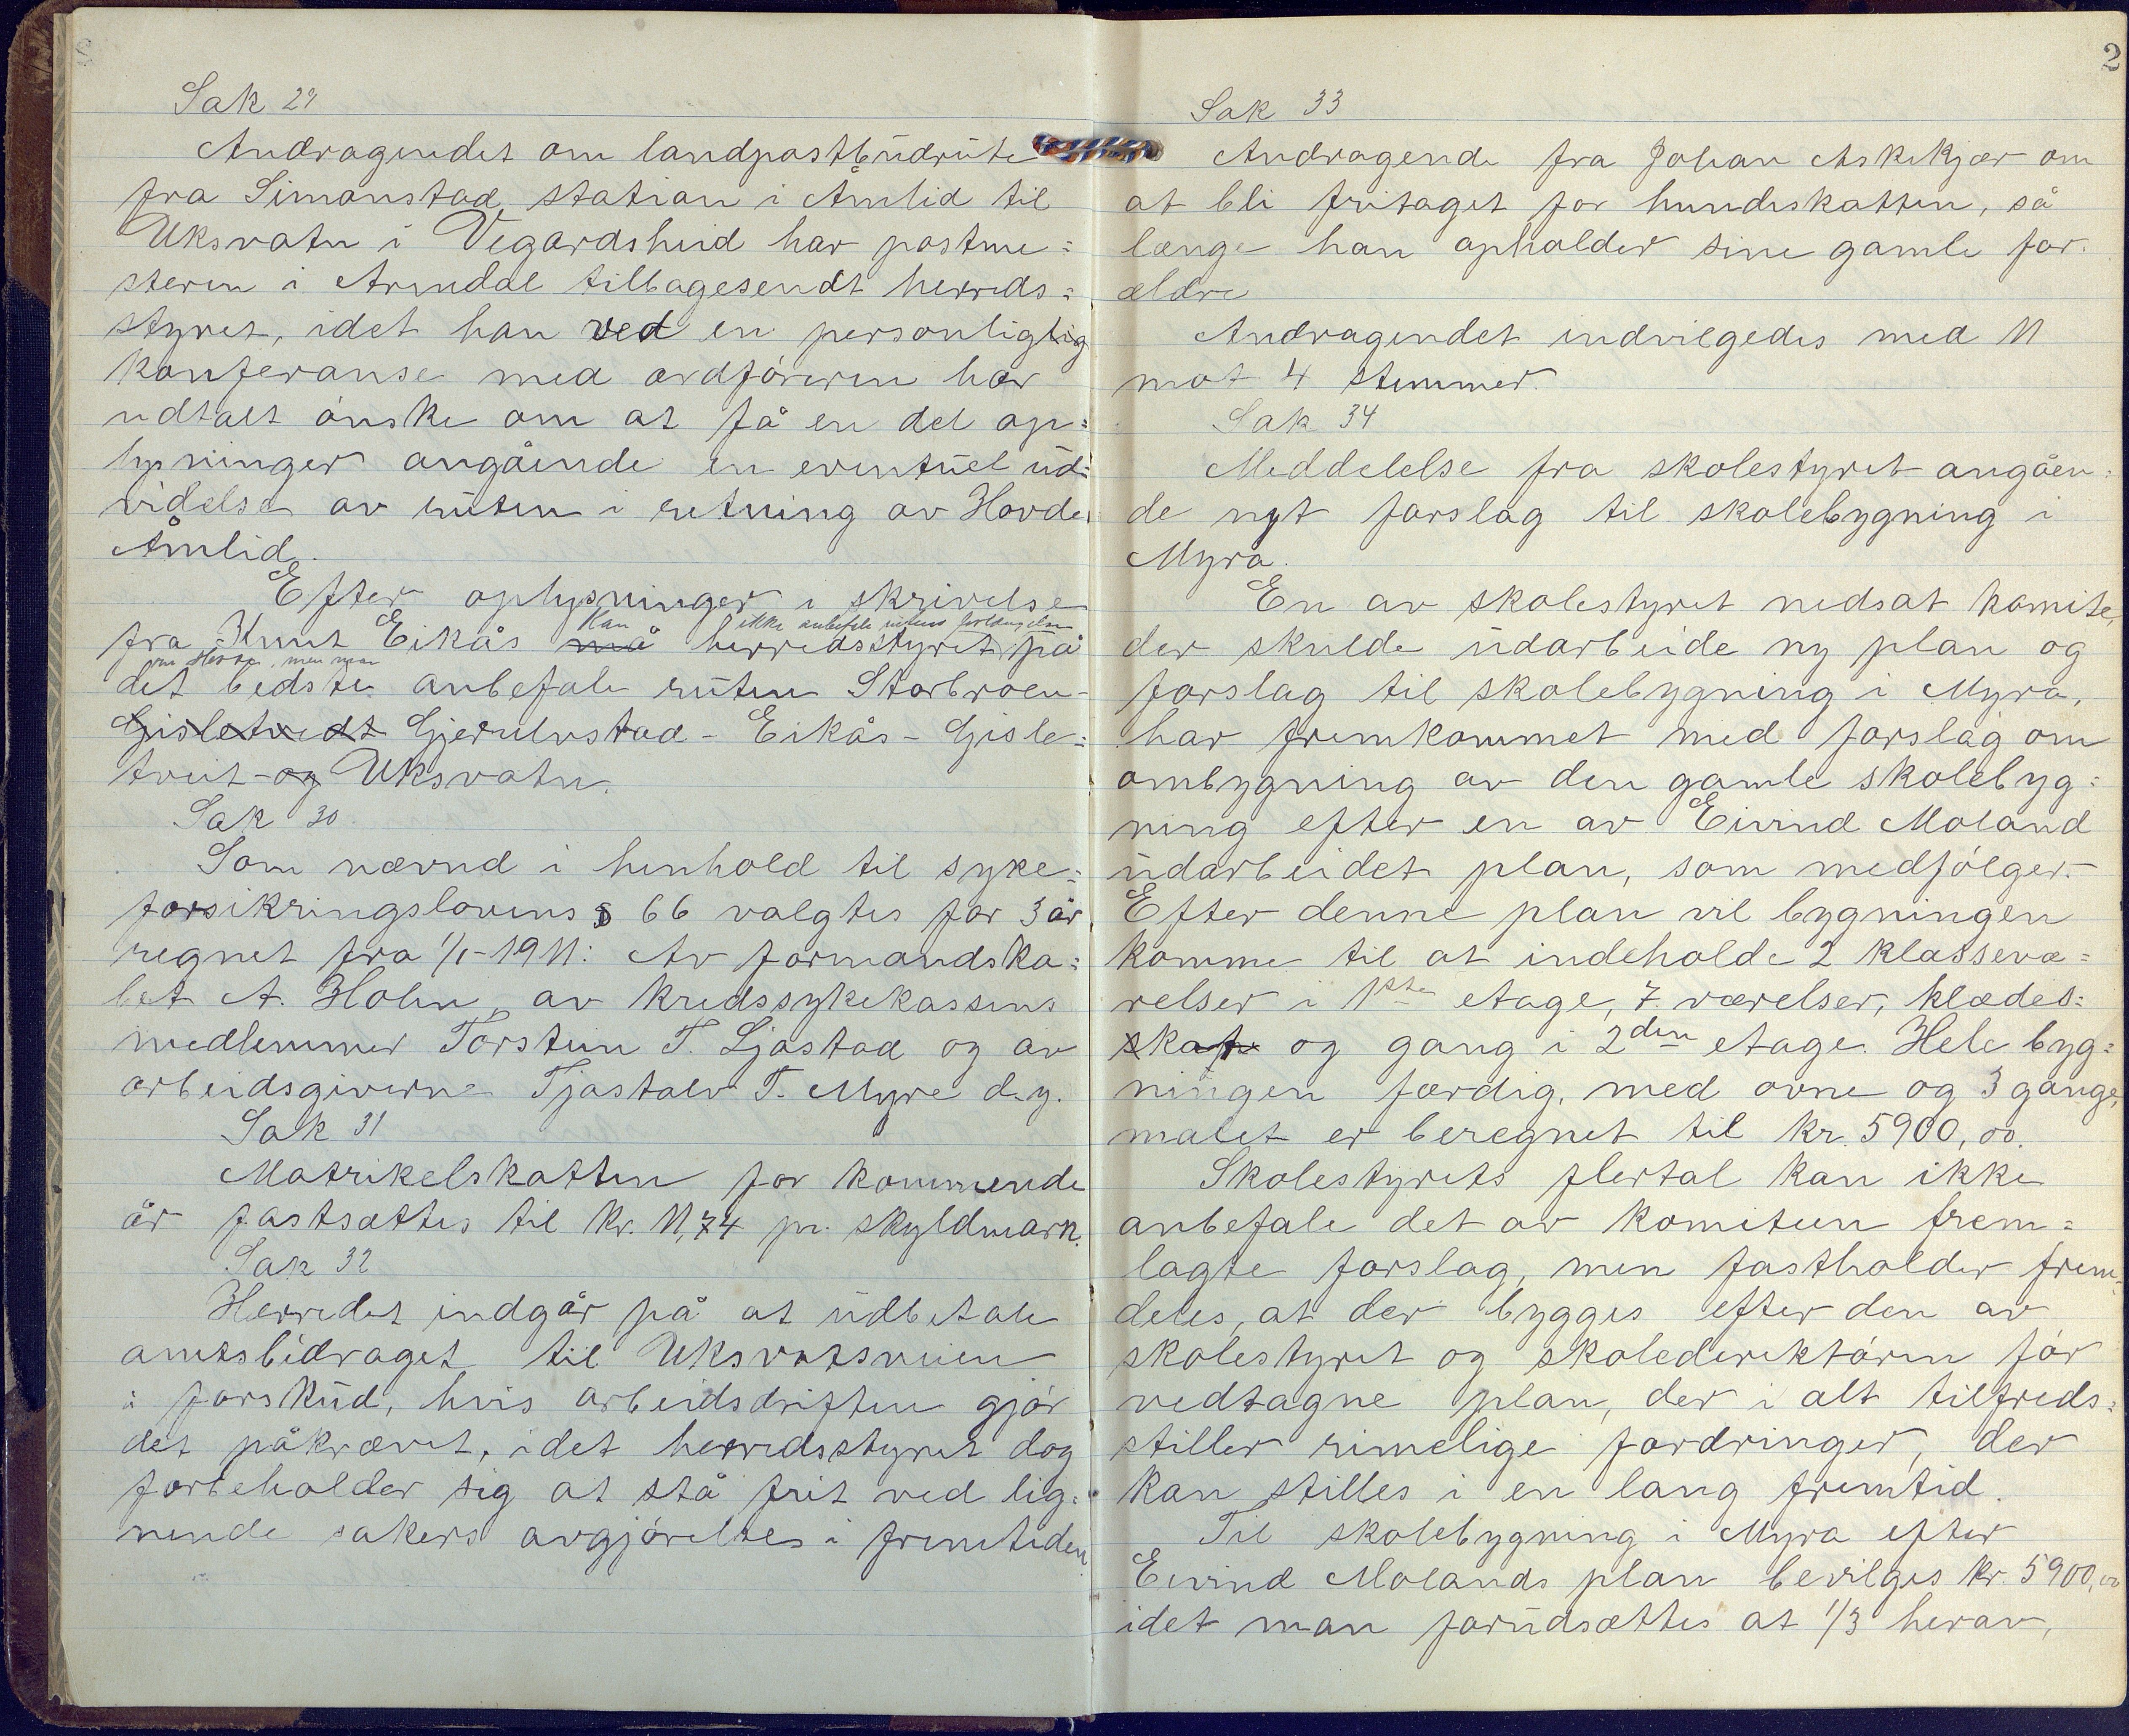 Sak 29
Andragendet om landpostbudrute
fra Simonstad station i Åmlid til
Uksvatn i Vegardsheid har postme=
steren i Arendal tilbagesendt herreds=
styret, idet han ved en personliglig
konferanse med ordføreren har
udtalt ønske om at få en del op=
lysninger angående en eventuel ud=
videlse av ruten i retning av Hovde
Åmlid.
Efter oplysninger i skrivelse
kan ikke anbefale rutens forlængelse
fra Knut Eikås må herredsstyret på
om Hovde, men man
det bedste anbefale ruten Storbroen-
Gisletvedt Gjerulvstad - Eikås - Gisle=
tveit - og Uksvatn.
Sak 30.
Som nævnd i henhold til syke=
forsikringslovens § 66 valgtes for 3 år
regnet fra 1/1-1911: Av formandska=
bet A. Holen, av kredssykekassens
medlemmer Torstein T. Ljøstad og av
arbeidsgiverne Tjøstolv T. Myre d.y.
Sak 31
Matrikelskatten for kommende
år fastsættes til kr. 11,74 pr. skyldmark.
Sak 32
Herredet indgår på at udbetale
amtsbidraget til Uksvatsveien
i forskud, hvis arbeidsdriften gjør
det påkrævet, idet herredsstyret dog
forbeholder sig at stå frit ved lig=
nende sakers avgjørelses i fremtiden.
2
Sak 33
Andragende fra Johan Askekjær om
at bli fritaget for hundeskatten, så
længe han opholder sine gamle for=
ældre
Andragendet indvilgedes med 11
mot 4 stemmer.
Sak 34
Meddelelse fra skolestyret angåen=
de nyt forslag til skolebygning i
Myra.
En av skolestyret nedsat komite,
der skulde udarbeide ny plan og
forslag til skolebygning i Myra,
har fremkommet med forslag om
ombygning av den gamle skolebyg=
ning efter en av Eivind Moland
udarbeidet plan, som medfølger.
Efter denne plan vil bygningen
komme til at indeholde 2 klassevæ=
relser i 1ste etage, 7 værelser, klædes=
skap og gang i 2den etage. Hele byg=
ningen færdig, med ovne og 3 gange
malet er beregnet til kr. 5900,00.
Skolestyrets flertal kan ikke
anbefale det av komiteen frem=
lagte forslag, men fastholder frem=
deles, at der bygges efter den av
skolestyret og skolederiktøren før
vedtagne plan, der i alt tilfreds=
stiller rimelige fordringer, der
kan stilles i en lang fremtid.
Til skolebygning i Myra efter
Eivind Molands plan bevilges kr. 5900,00
idet man forudsættes at 1/3 herav,